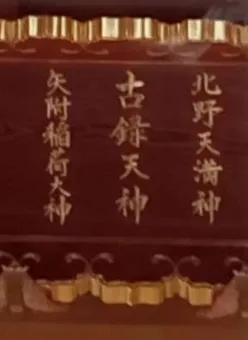 北野天満神
古録天神
矢附稲荷大神